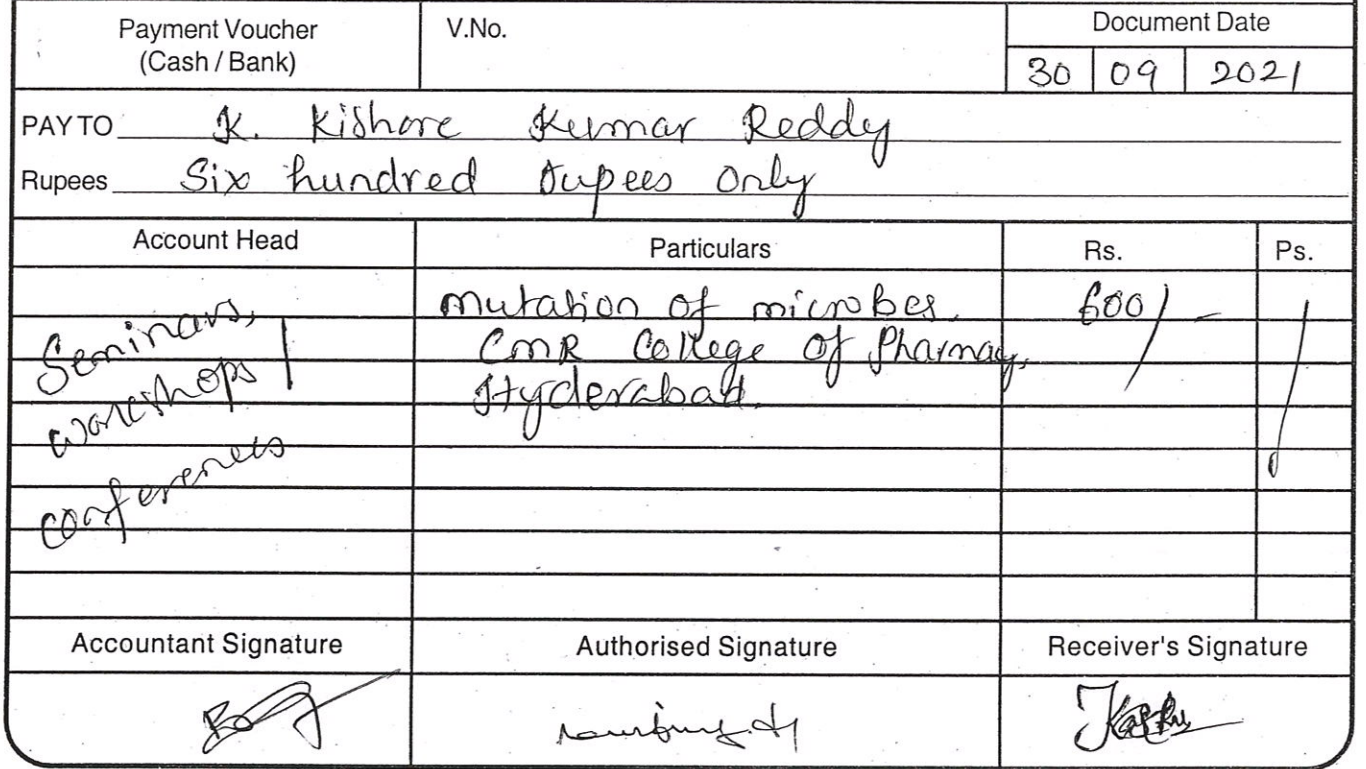 Payment Voucher
(Cash / Bank)
V.No.
Document Date
30 09 2021
PAY TO K. Kishore Kumar Reddy
Rupees Six hundred rupees only
Account Head Particulars Rs. Ps.
Seminars,
workshops /
conferences
mutation of microbes.
CMR College of Pharmacy,
Hyderabad.
600/-
Accountant Signature Authorised Signature Receiver's Signature